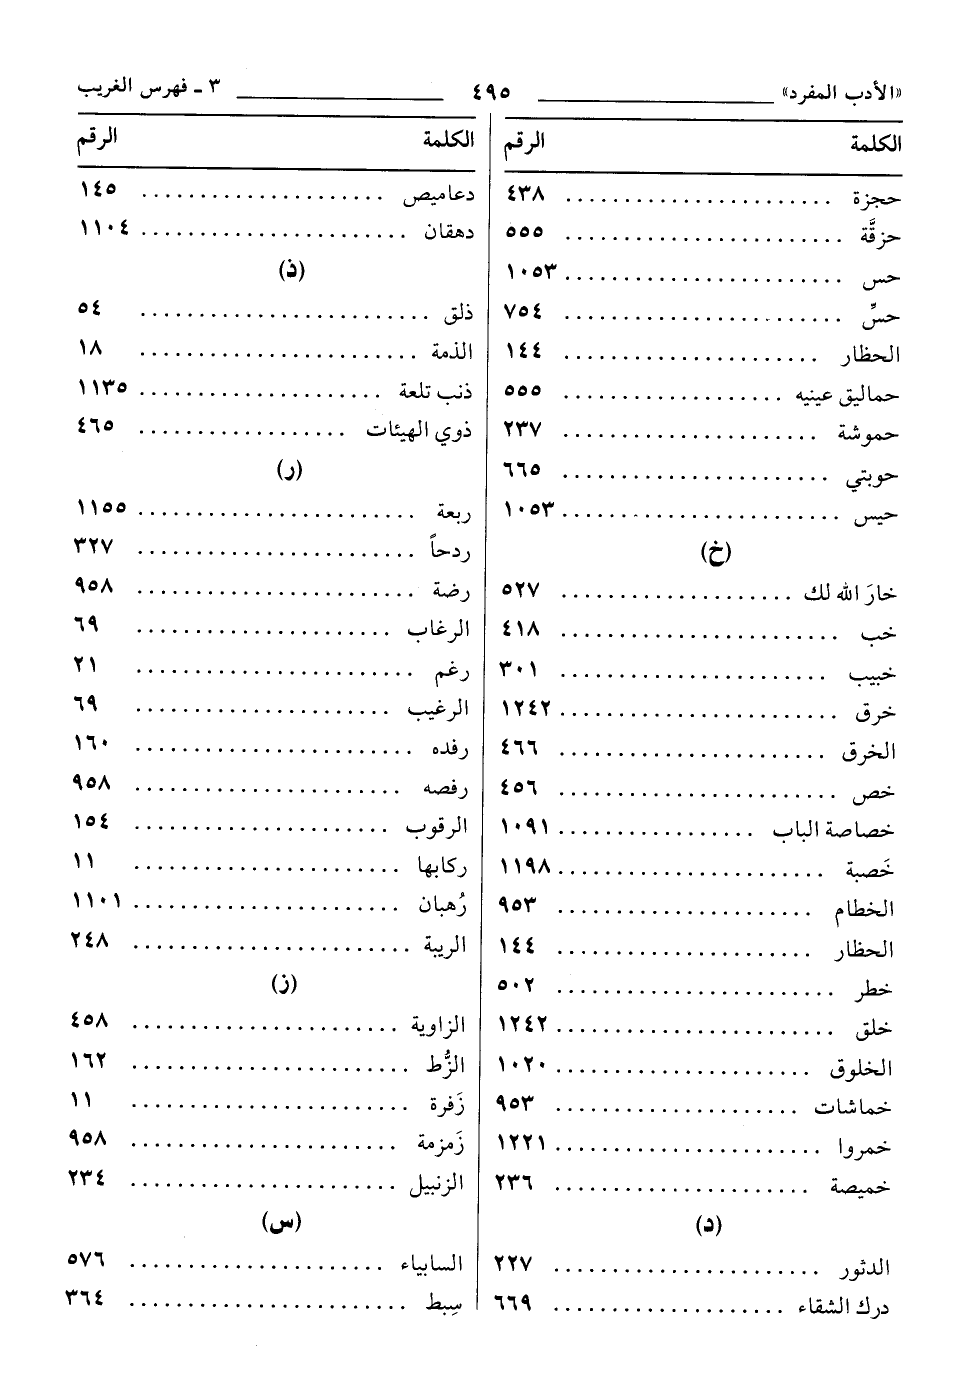 «الأدب المفرد» ٤٩٥ ٣ ـ فهرس الغريب
الكلمة الرقم
حجزة ٤٣٨
حزقَّة ٥٥٥
حس ١٠٥٣
حسِّ ٧٥٤
الحظار ١٤٤
حماليق عينيه ٥٥٥
حموشة ٢٣٧
حوبتي ٦٦٥
حيس ١٠٥٣
(خ)
خارَ الله لك ٥٢٧
خب ٤١٨
خبيب ٣٠١
خرق ١٢٤٢
الخرق ٤٦٦
خص ٤٥٦
خصاصة الباب ١٠٩١
خَصبة ١١٩٨
الخطام ٩٥٣
الحظار ١٤٤
خطر ٥٠٢
خلق ١٢٤٢
الخلوق ١٠٢٠
خماشات ٩٥٣
خمروا ١٢٢١
خميصة ٢٣٦
(د)
الدثور ٢٢٧
درك الشقاء ٦٦٩
الكلمة الرقم
دعاميص ١٤٥
دهقان ١١٠٤
(ذ)
ذلق ٥٤
الذمة ١٨
ذنب تلعة ١١٣٥
ذوي الهيئات ٤٦٥
(ر)
ربعة ١١٥٥
ردحاً ٣٢٧
رضة ٩٥٨
الرغاب ٦٩
رغم ٢١
الرغيب ٦٩
رفده ١٦٠
رفصه ٩٥٨
الرقوب ١٥٤
ركابها ١١
رُهبان ١١٠١
الريبة ٢٤٨
(ز)
الزاوية ٤٥٨
الزُّط ١٦٢
زَفرة ١١
زَمزمة ٩٥٨
الزنبيل ٢٣٤
(س)
السابياء ٥٧٦
سِبط ٣٦٤